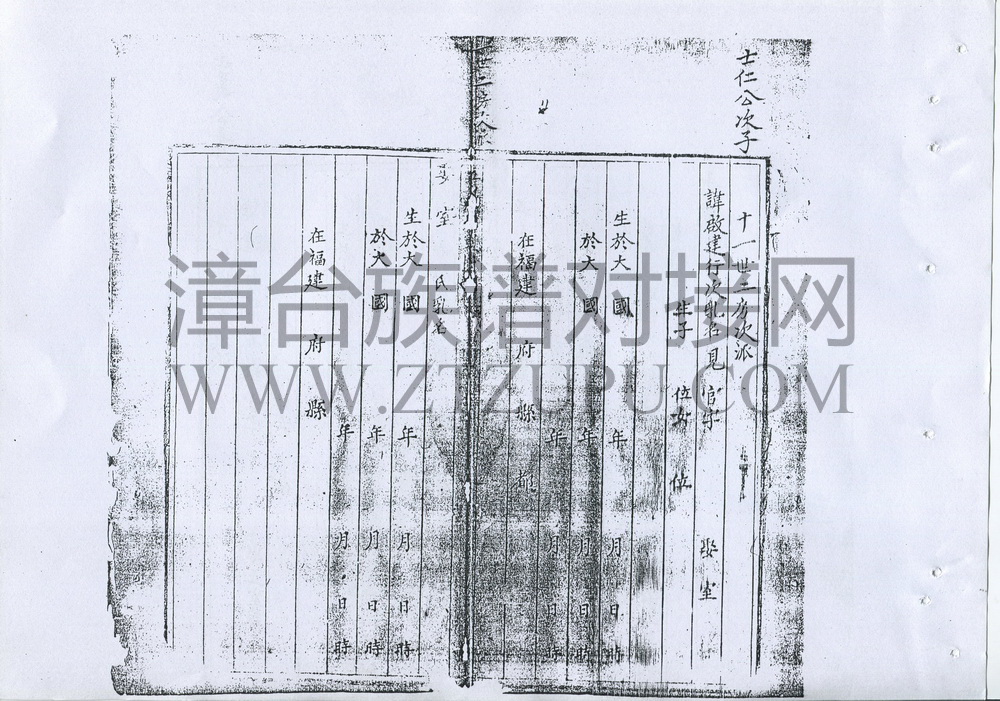 士仁公次子
十一世二房次派
諱啟建行次乳名見官宋 娶室
生子 位女 位
生於大 國 年 月 日
於大 國 年 月 日 時
年 月 日 時
在福建 府 縣 都
室 氏乳名
生於大 國 年 月 日 時
於大 國 年 月 日 時
年 月 日 時
在福建 府 縣
漳台族谱对接网
WWW.ZTZUPU.COM